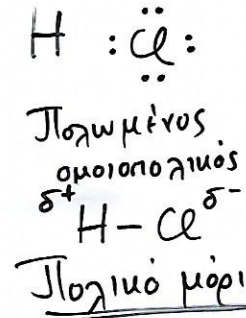 H :Cl:
Πολωμένος
ομοιοπολικός
δ+ H – Cl δ-
Πολικό μόρι